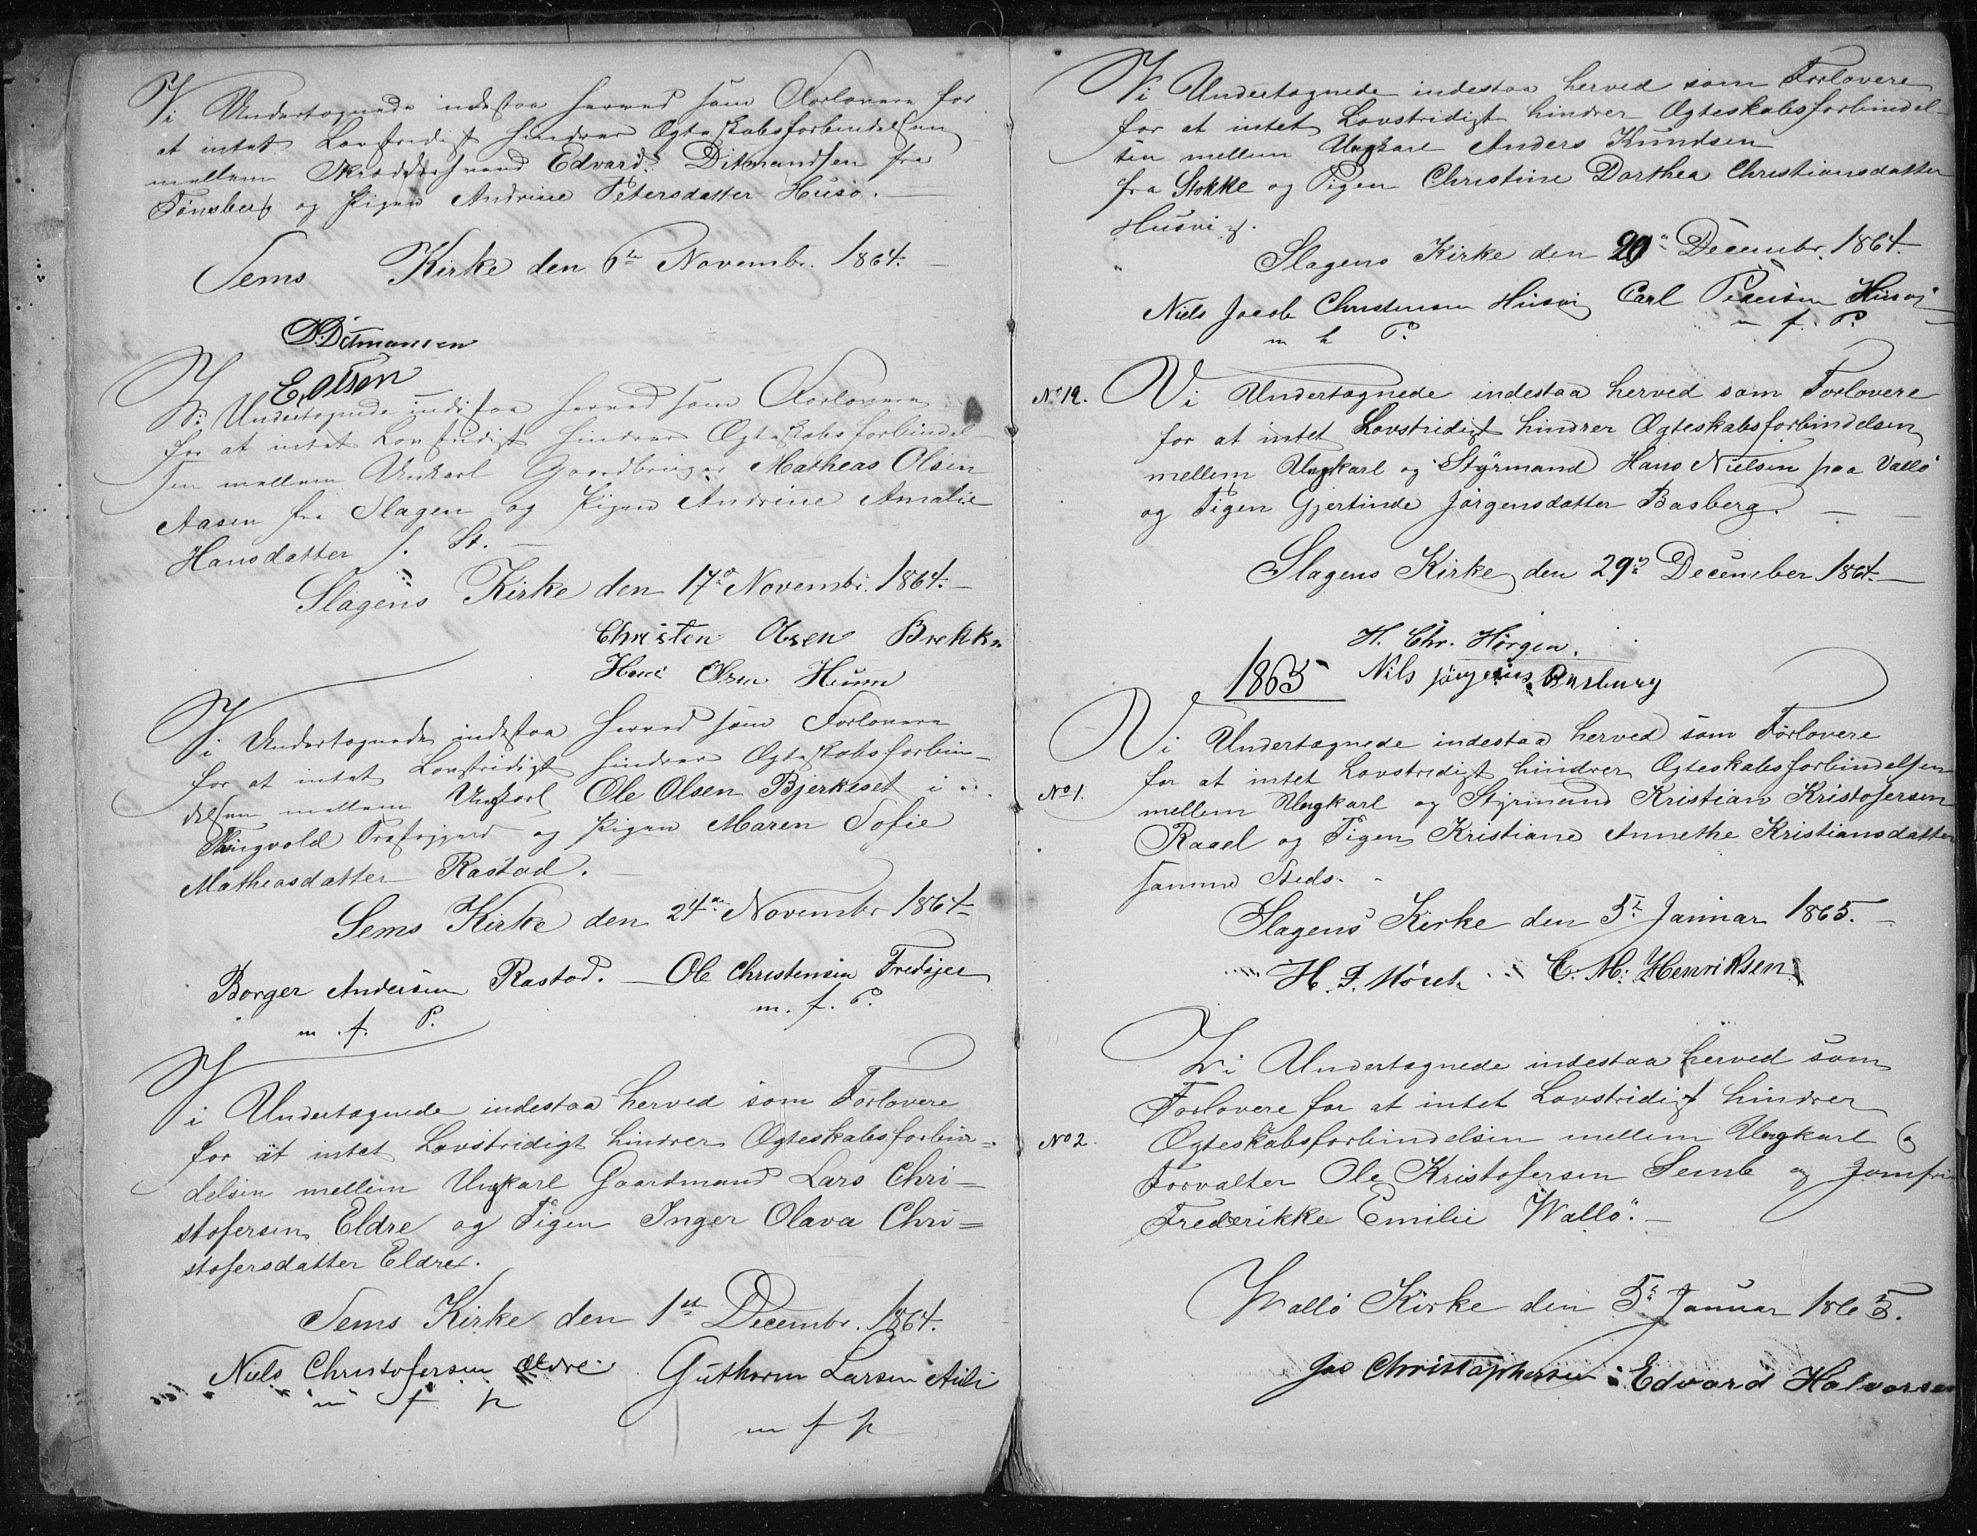 Vi Undertegnede indestaa herved som Forlovere for
at intet Lovstridigt hindrer Ægteskabsforbindelsen
mellem Edvard Ditmandsen fra
Tønsberg og Pigen Andrine Petersdatter Husø.
Sems Kirke den 6te Novembr. 1864.
D. Ditmansen
E. Olsen
Vi Undertegnede indestaa herved som Forlovere
for at intet Lovstridigt hindrer Ægteskabsforbindel-
sen mellem Unkarl Gaardbruger Matheas Olsen
Aasen fra Slagen og Pigen Andrine Amalie
Hansdatter s. St.
Slagens Kirke den 17de Novembr. 1864.
Christen Olsen Brekke
Olsen
Vi Undertegnede indestaa herved som Forlovere
for at intet Lovstridigt hindrer Ægteskabsforbin-
delsen mellem Ungkarl Ole Olsen Bjerkeset i
og Pigen Maren Sofie
Matheasdatter Rastad.
Sems Kirke den 24de Novembr 1864
Borger Andersen Rastad. Ole Christensen
m. f. P. m. f. P.
Vi Undertegnede indestaa herved som Forlovere
for at intet Lovstridigt hindrer Ægteskabsforbin-
delsen mellem Ungkarl Gaardmand Lars Chri-
stofersen Eldre og Pigen Inger Olava Chri-
stofersdatter Eldre.
Sems Kirke den 1st Decembr. 1864.
Niels Christofersen Guthorm Larsen
m f p
m f p
Vi Undertegnede indestaa herved som Forlovere
for at intet Lovstridigt hindrer Ægteskabsforbindel-
sen mellem Ungkarl Anders Knudsen
fra Stokke og Pigen Christine Dorthea Christiansdatter
Husvig.
Slagens Kirke den Decembr. 1864
Niels Jacob Christensen Husvig Carl Pedersen Husvig
m f. P.
No 12. Vi Undertegnede indestaa herved som Forlovere
for at intet Lovstridigt hindrer Ægteskabsforbindelsen
mellem Ungkarl og Styrmand Hans Nielsen paa Vallø
og Pigen Gjertinde Jørgensdatter Basberg.
Slagens Kirke den 29de December 1864
H. Chr. Hørgen.
1865 Nils Jørgens
Vi Undertegnede indestaa herved som Forlovere
for at intet Lovstridigt hindrer Ægteskabsforbindelsen
No 1. mellem Ungkarl og Styrmand Kristian Kristofersen
Raael og Pigen Kristiane Annethe Kristiansdatter
samme Steds.
Slagens Kirke den 5te Januar 1865.
H. F. C. M. Henriksen
Vi Undertegnede indestaa herved som
Forlovere for at intet Lovstridigt hindrer
No 2. Ægteskabsforbindelsen mellem Ungkarl og
Forvalter Ole Kristofersen Semb og Jomfru
Frederikke Emilie Wallø.
Wallø Kirke den 5te Januar 1865.
Christophersen Edvard Halvorsen